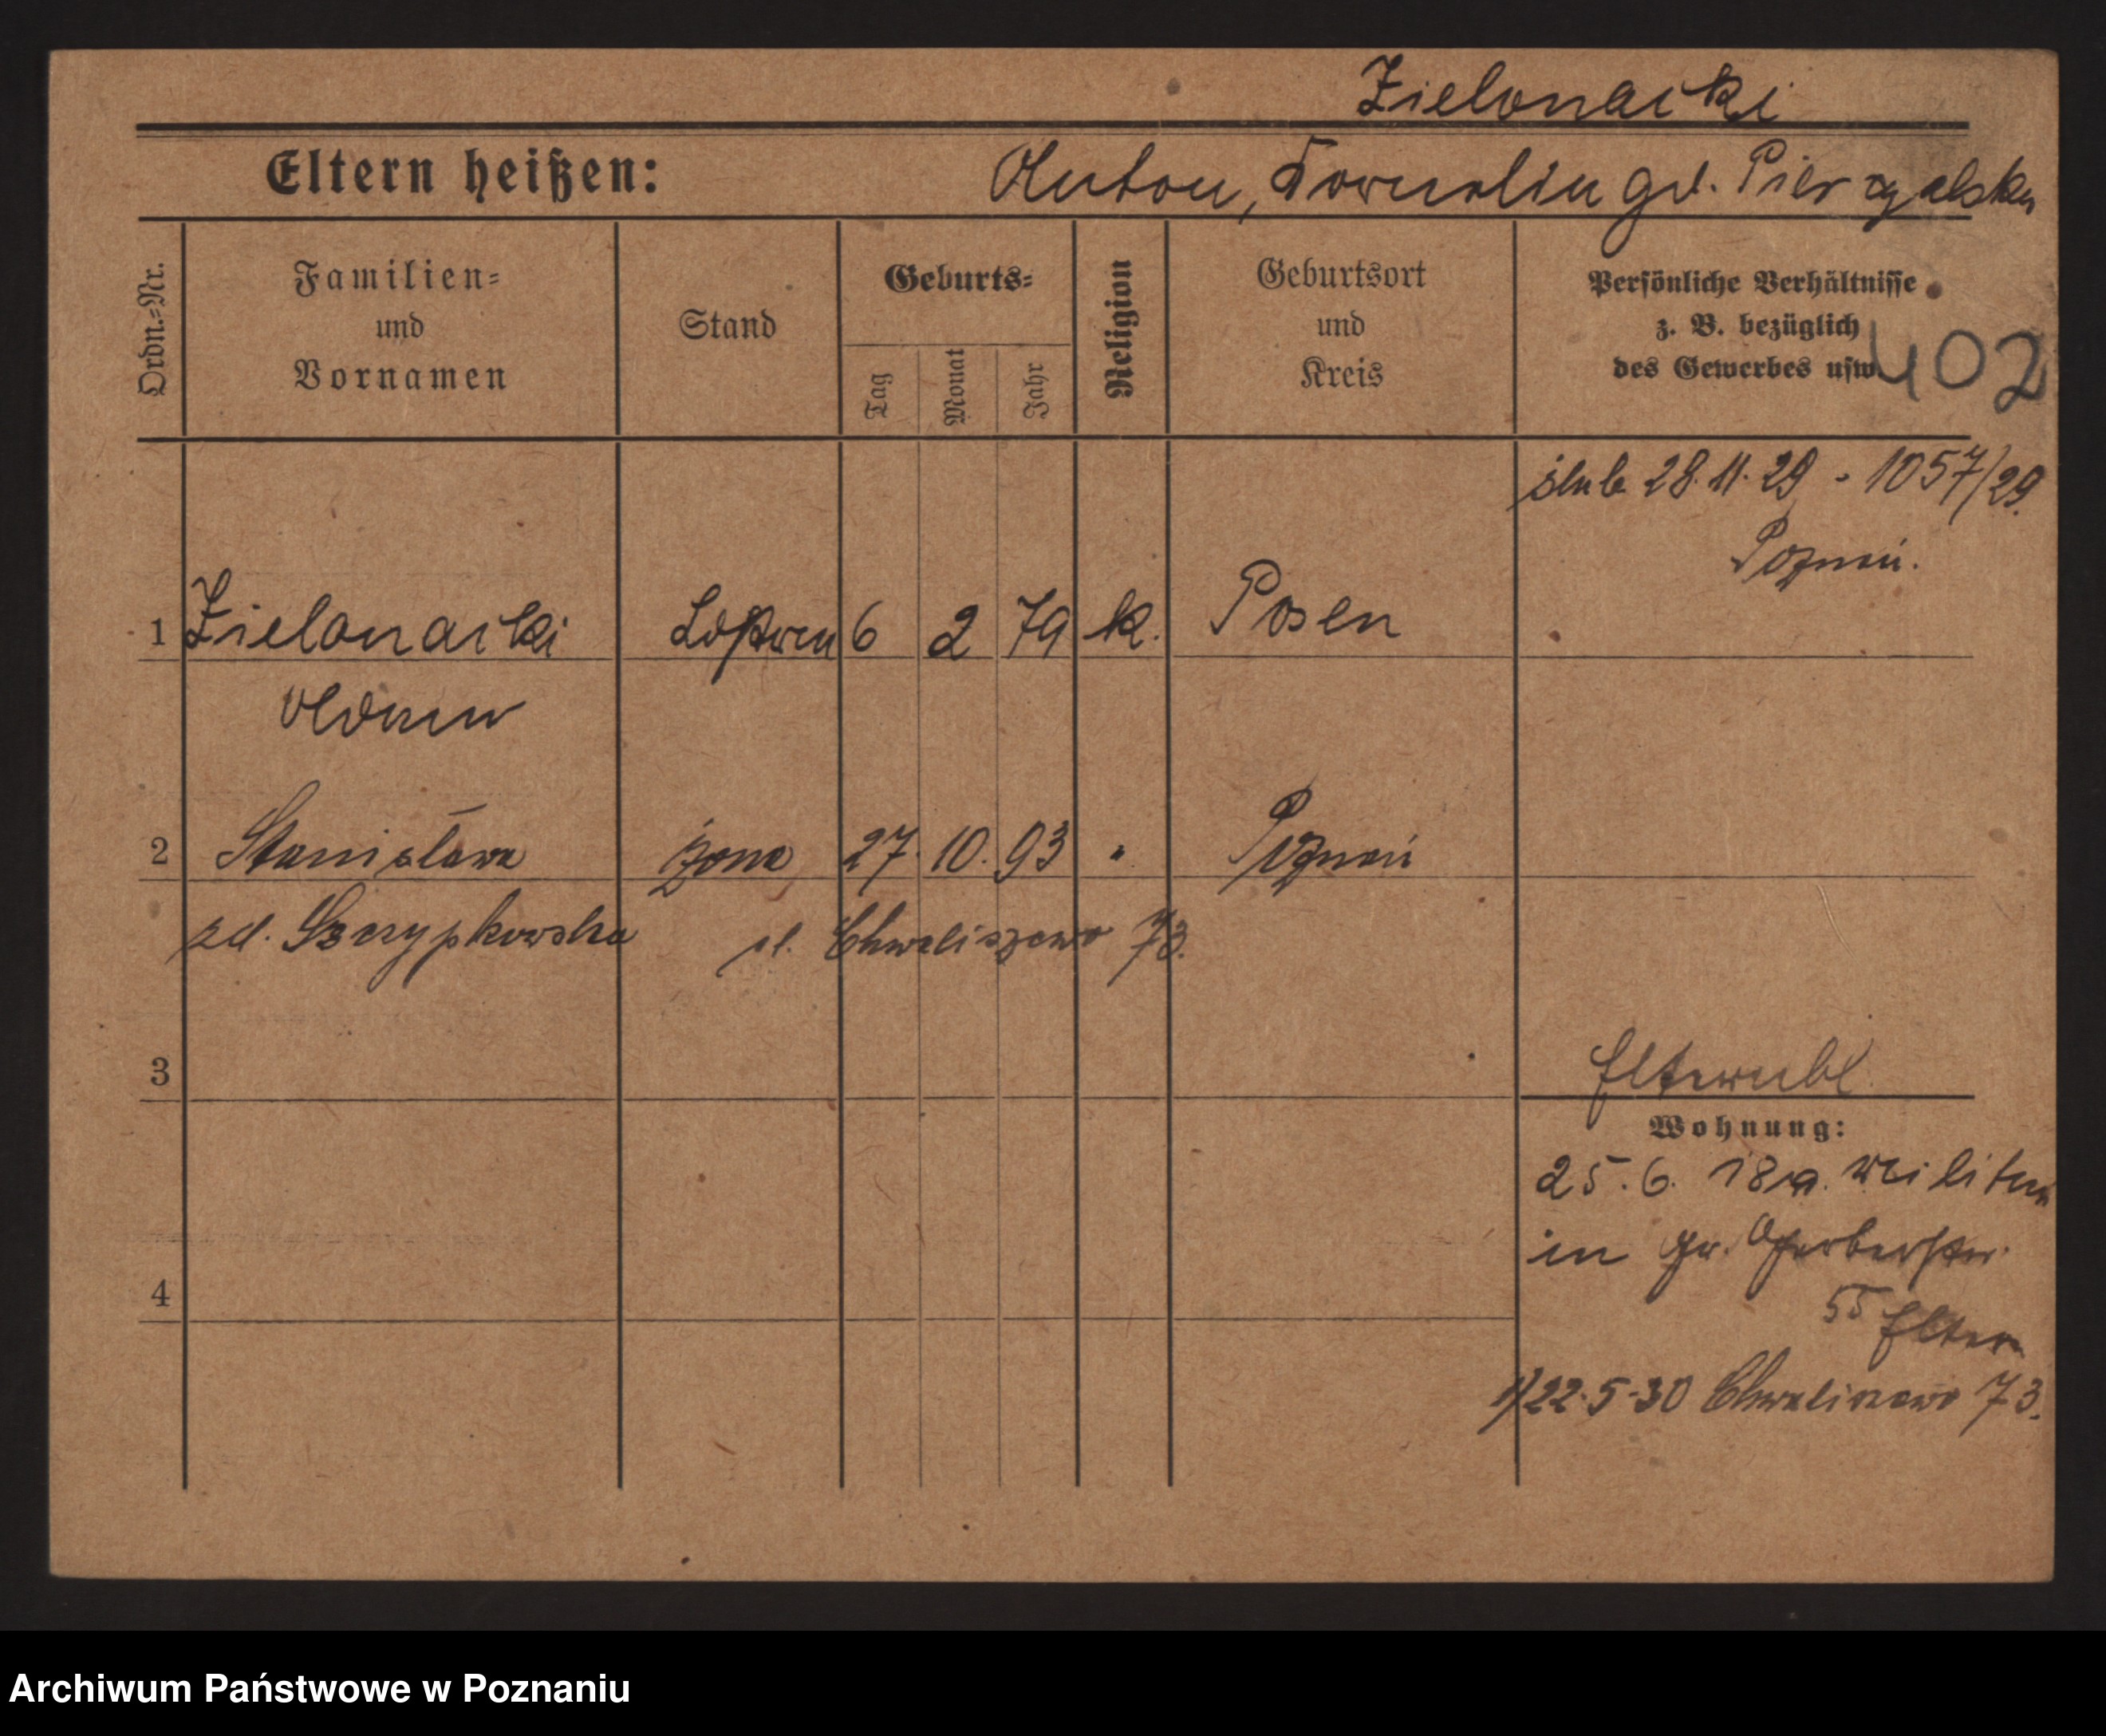 Zielonacki
Eltern heißen:
Anton, gd.
Ordn.-Nr.
Familien-
und
Vornamen
Stand
Geburts-
Tag
Monat
Jahr
Religion
Geburtsort
und
Kreis
Persönliche Verhältnisse
z. B. bezüglich
des Gewerbes usw.
402
ślub 28.11.29 - 1057/29.
Poznań.
1 Zielonacki 6 2 79 k. Posen
2 Stanisława żona 27. 10. 93 " Poznań
zd. Szczypkowska ul. Chwaliszewo 73.
3
Wohnung:
25.6. 18 a. Militär
in Gr. Gerberstr.
55 Eltern
4
1) 22.5.30 Chwaliszewo 73.
Archiwum Państwowe w Poznaniu